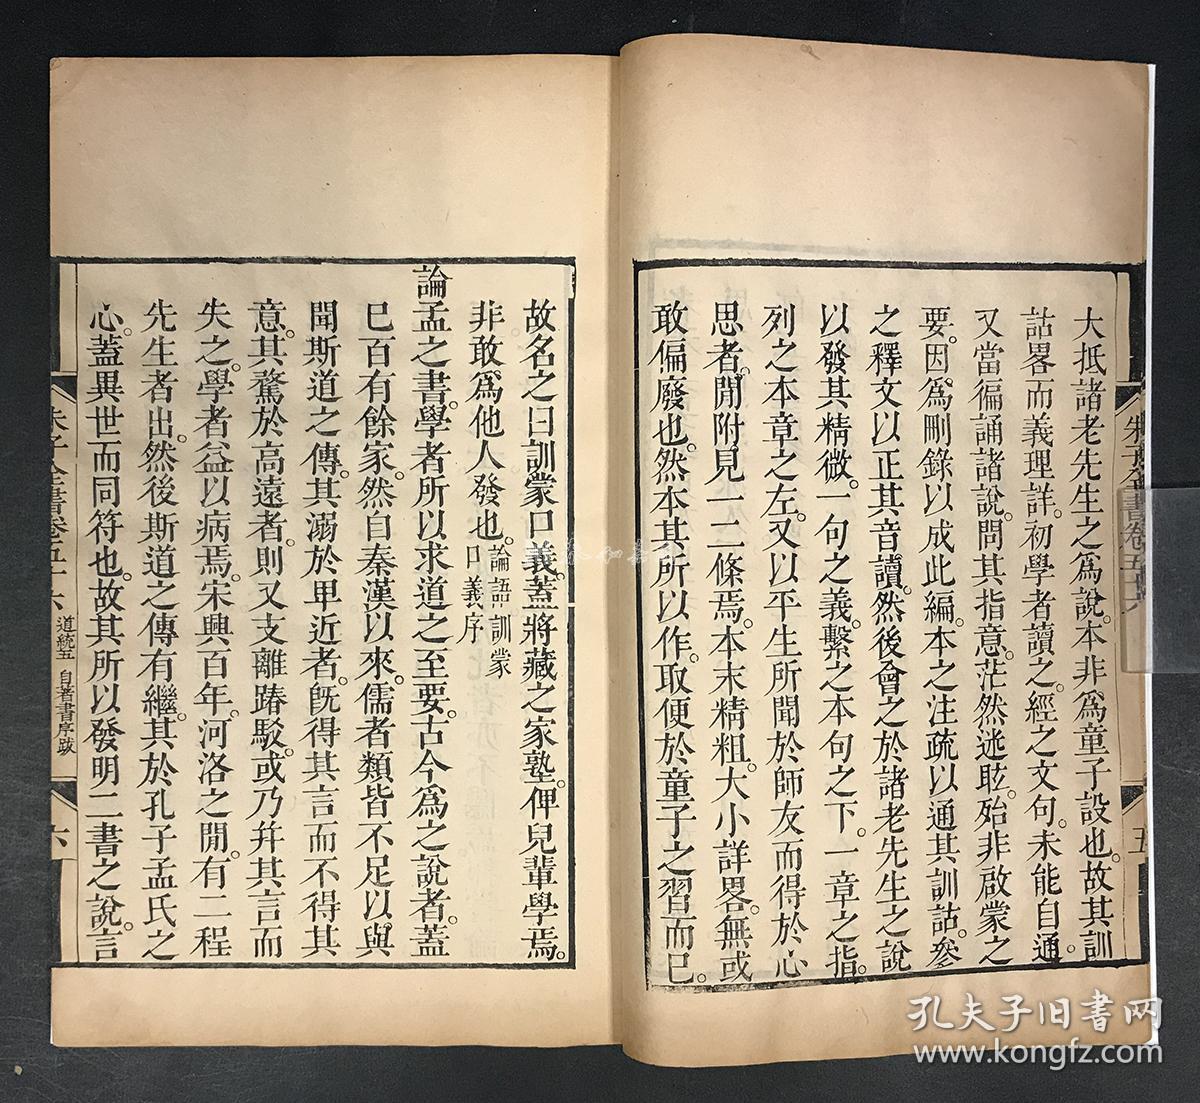 大抵諸老先生之爲說。本非爲童子設也。故其訓
詁畧而義理詳。初學者讀之。經之文句。未能自通。
又當徧誦諸說。問其指意。茫然迷眩。殆非啟蒙之
要。因爲刪錄以成此編。本之注疏以通其訓詁。參
之釋文以正其音讀。然後會之於諸老先生之說
以發其精微。一句之義。繫之本句之下。一章之指。
列之本章之左。又以平生所聞於師友而得於心
思者。閒附見一二條焉。本末精粗。大小詳畧。無或
敢偏廢也。然本其所以作。取便於童子之習而已。
故名之曰訓蒙口義。蓋將藏之家塾。俾兒輩學焉。
非敢爲他人發也。論語訓蒙口義序
論孟之書。學者所以求道之至要。古今爲之說者。蓋
已百有餘家。然自秦漢以來。儒者類皆不足以與
聞斯道之傳。其溺於卑近者。旣得其言而不得其
意。其騖於高遠者。則又支離踳駁。或乃幷其言而
失之。學者益以病焉。宋興百年。河洛之閒。有二程
先生者出。然後斯道之傳有繼。其於孔子孟氏之
心。蓋異世而同符也。故其所以發明二書之說。言
朱子全書卷五十六 道統五 自著書序跋 六
五
孔夫子旧书网
www.kongfz.com